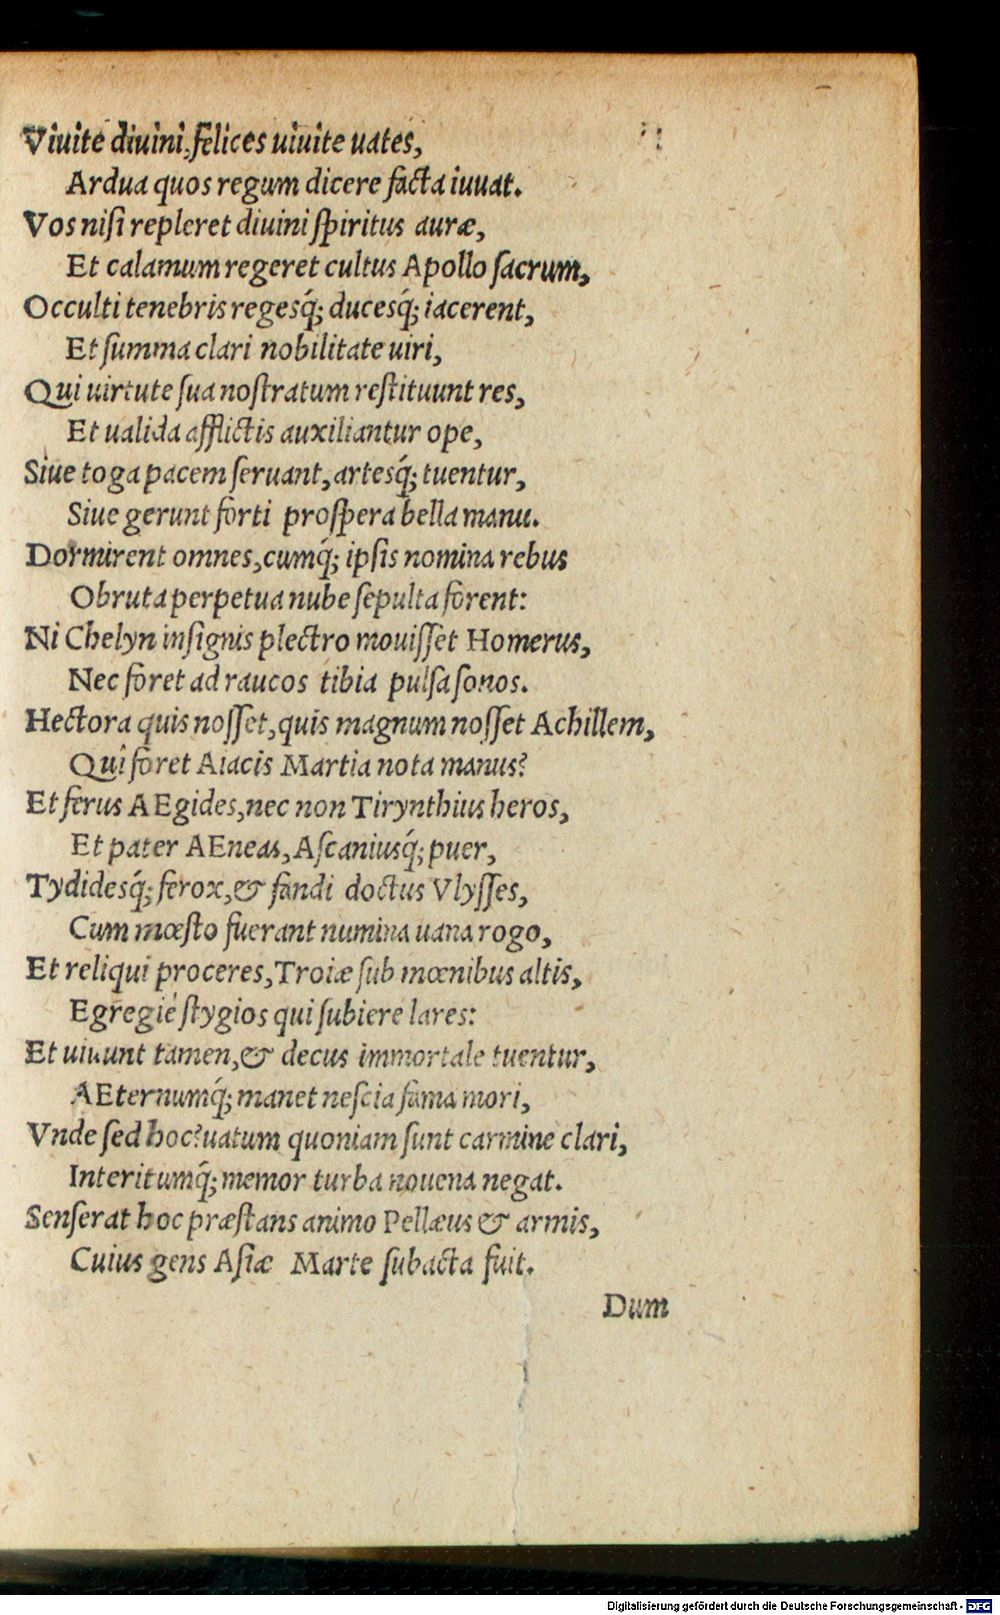 Viuite diuini, felices uiuite uates,
Ardua quos regum dicere facta iuuat.
Vos nisi repleret diuini spiritus auræ,
Et calamum regeret cultus Apollo sacrum,
Occulti tenebris regesq́; ducesq́; iacerent,
Et summa clari nobilitate uiri,
Qui uirtute sua nostratum restituunt res,
Et ualida afflictis auxiliantur ope,
Siue toga pacem seruant, artesq́; tuentur,
Siue gerunt forti prospera bella manu.
Dormirent omnes, cumq́; ipsis nomina rebus
Obruta perpetua nube sepulta forent:
Ni Chelyn insignis plectro mouisset Homerus,
Nec foret ad raucos tibia pulsa sonos.
Hectora quis nosset, quis magnum nosset Achillem,
Qui foret Aiacis Martia nota manus?
Et ferus AEgides, nec non Tirynthius heros,
Et pater AEneas, Ascaniusq́; puer,
Tydidesq́; ferox, & fandi doctus Vlysses,
Cum mœsto fuerant numina uana rogo,
Et reliqui proceres, Troiæ sub mœnibus altis,
Egregié stygios qui subiere lares:
Et uiuunt tamen, & decus immortale tuentur,
AEternumq́; manet nescia fama mori,
Vnde sed hoc? uatum quoniam sunt carmine clari,
Interitumq́; memor turba nouena negat.
Senserat hoc præstans animo Pellæus & armis,
Cuius gens Asiæ Marte subacta fuit.
Dum
Digitalisierung gefördert durch die Deutsche Forschungsgemeinschaft - DFG